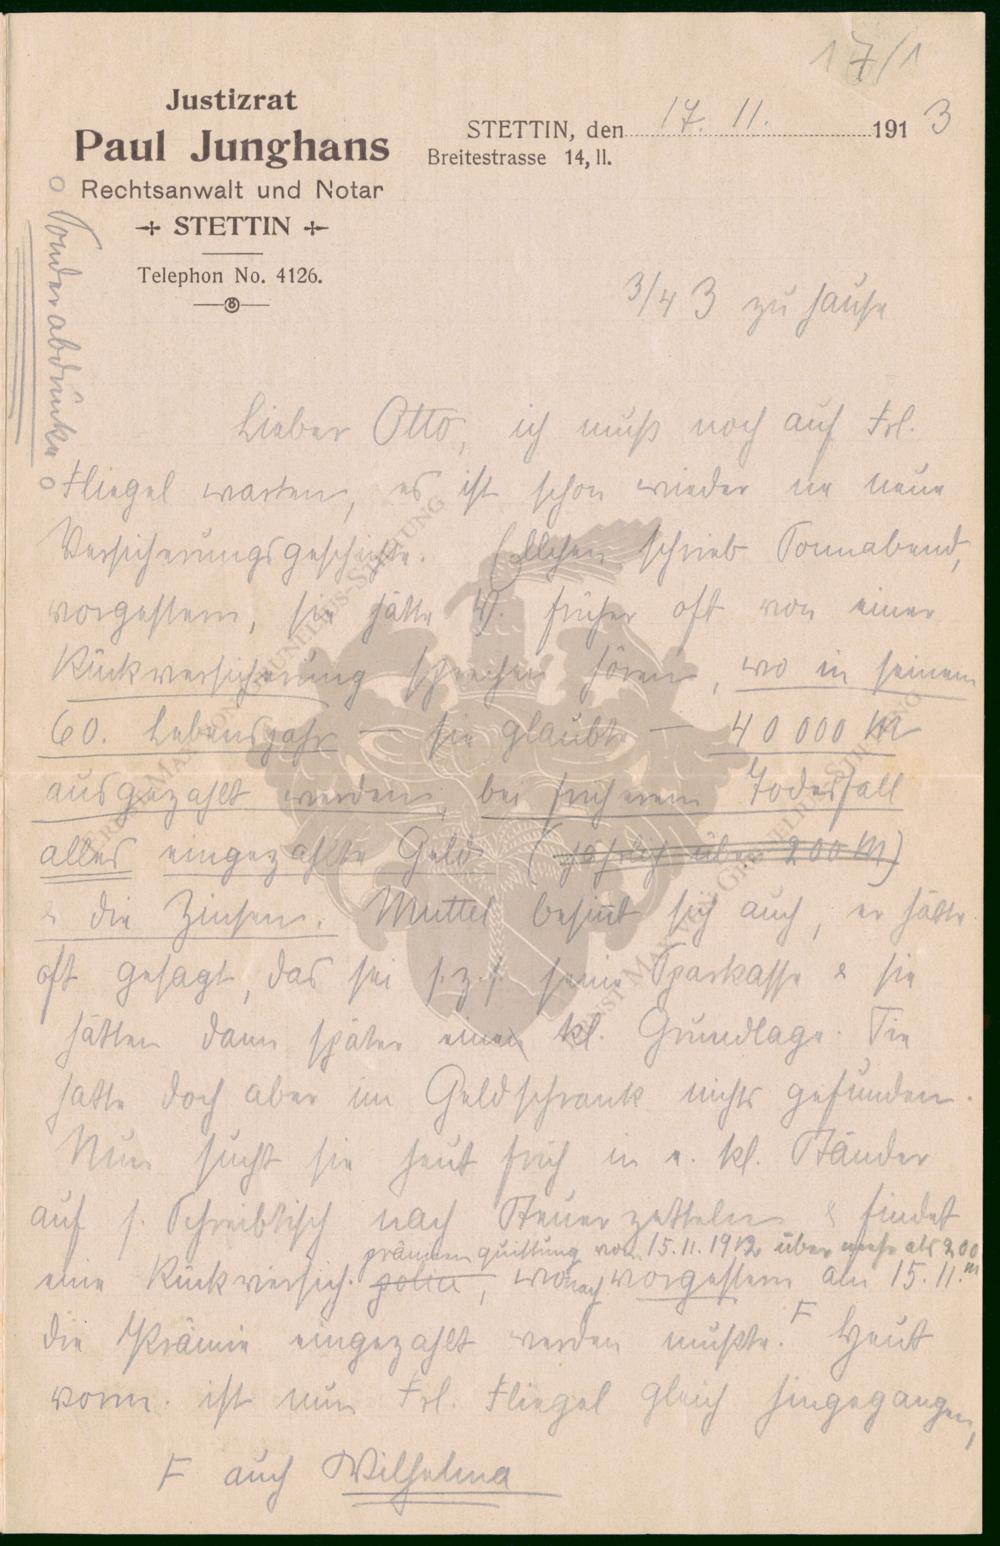 17/1
Justizrat
Paul Junghans
Rechtsanwalt und Notar
STETTIN
Telephon No. 4126.
STETTIN, den 17. 11. 1913
Breitestrasse 14, II.
Sonderabdrücke
3/4 3 zu Hause
Lieber Otto, ich muß noch auf Frl.
Fliegel warten, es ist schon wieder ne neue
Versicherungsgeschichte. Ellchen schrieb Sonnabend,
vorgestern, sie hätte V. früher oft von einer
Rückversicherung sprechen hören, wo in seinem
60. Lebensjahr — sie glaubt — 40000 M
ausgezahlt werden, bei früherem Todesfall
alles eingezahlte Geld (jährlich über 200 M)
& die Zinsen. Muttel besinnt sich auch, er hätte
oft gesagt, das sei s.z.s. seine Sparkasse & sie
hätten dann später einen kl. Grundlage. Sie
hatte doch aber im Geldschrank nichts gefunden.
Nun sucht sie heut früh in e. kl. Ständer
auf s. Schreibtisch nach Steuerzetteln & findet
prämienquittung von 15.11.1912 über mehr als 200 M
eine Rückversich. police, wonach vorgestern am 15.11.
die Prämie eingezahlt werden mußte. F Heut
vorm. ist nun Frl. Fliegel gleich hingegangen,
F auch Wilhelma
ERNST-MAX VON GRUNELIUS-STIFTUNG
ERNST-MAX VON GRUNELIUS-STIFTUNG